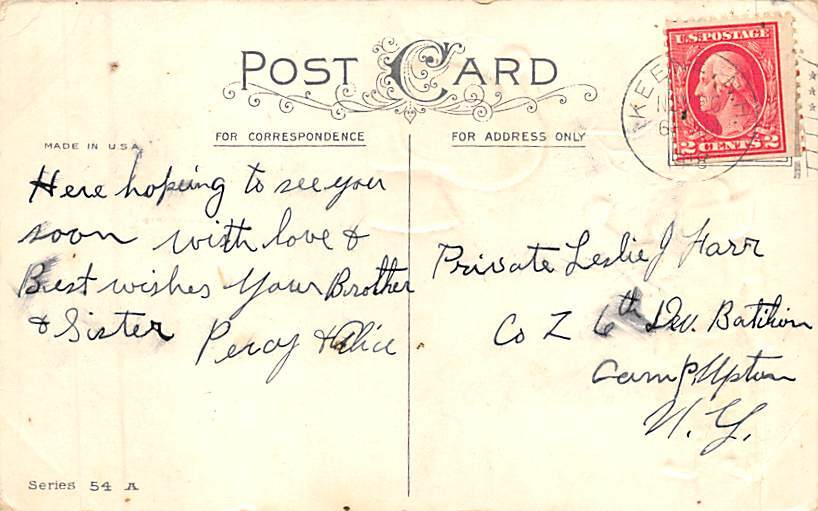 POST CARD
U.S. POSTAGE
2 CENTS 2
MADE IN U.S.A.
FOR CORRESPONDENCE
FOR ADDRESS ONLY
Here hopeing to see you
soon with love &
Best wishes Your Brother
& Sister Percy & Alice
Private Leslie J Farr
Co Z 6th Dev. Batilion
Camp Upton
N. Y.
Series 54 A